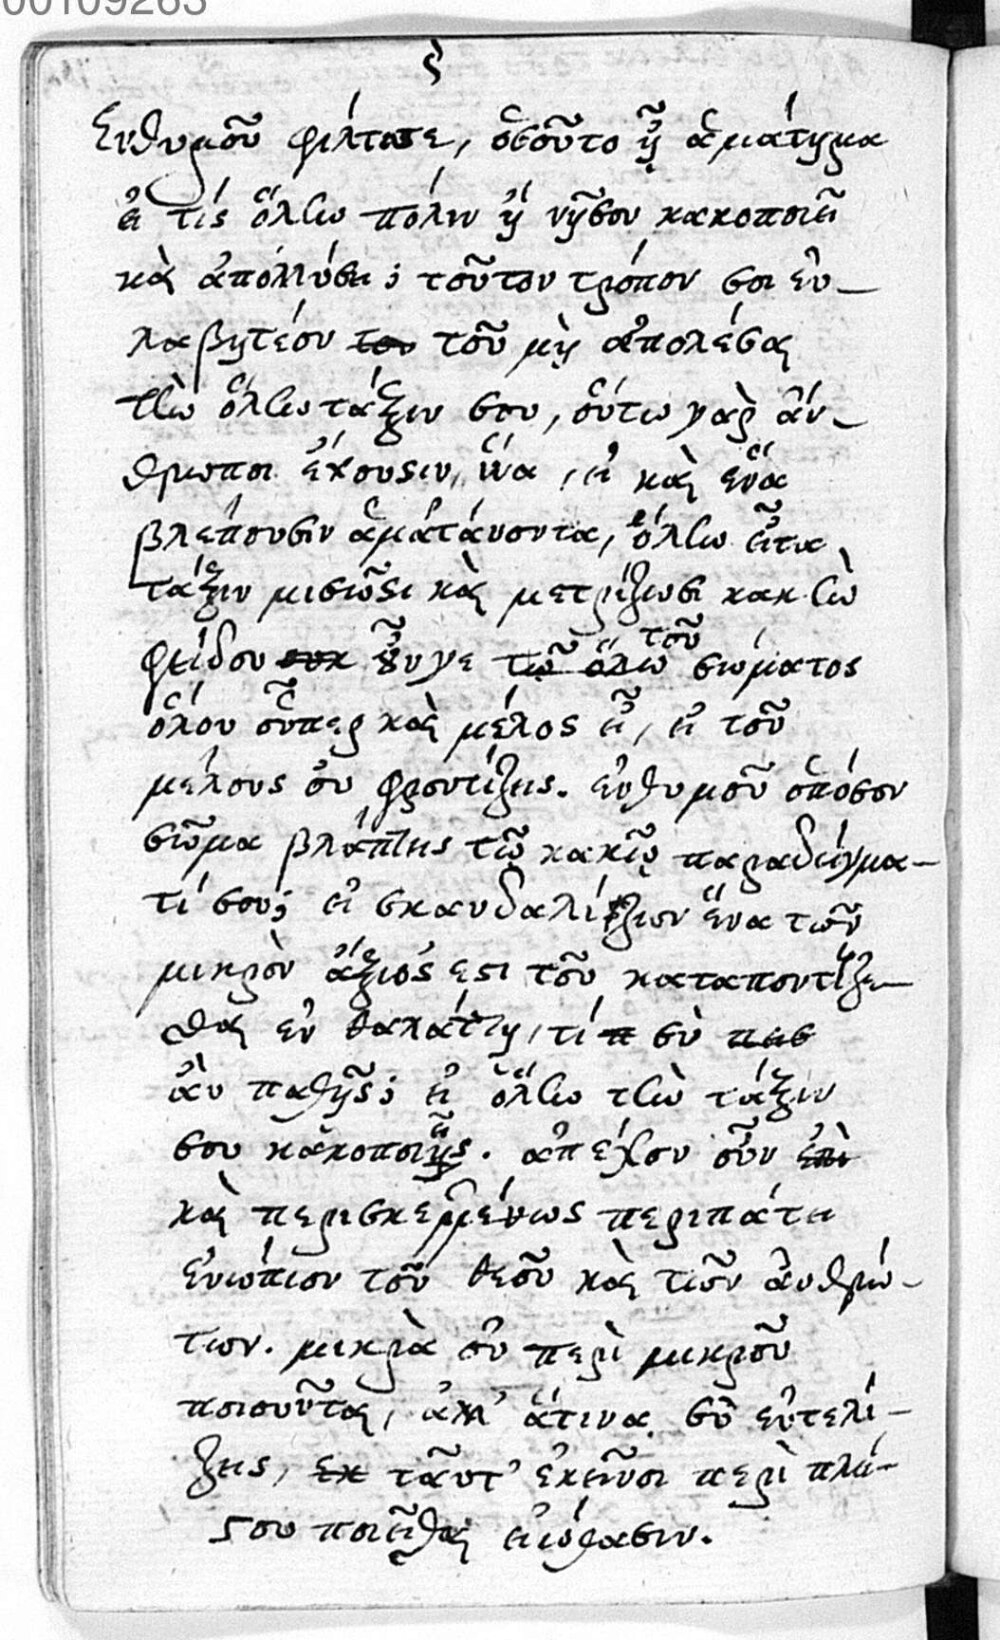 00109263
ϛ
Ἐνθυμοῦ φίλτατε, ὁσοῦτο ᾖ ἁμάτημα
εἰ τίς ὅλην πόλιν ἢ νῆσον κακοποιεῖ
καὶ ἀπολλύσει; τοῦτον τρόπον σοι εὐ-
λαβητέον του τοῦ μὴ ἀπολέσαι
τὴν ὅλην τάξιν σου, οὕτω γὰρ ἄν-
θρωποι ἔχουσιν, ἵνα, εἰ καὶ ἕνα
βλέπουσιν ἁματάνοντα, ὅλην εἶτα
τάξιν μισῶσι καὶ μετρίζωσι κακὴν
φείδου οὐκ οὖν γε τῷ ὅλῳ τοῦ σώματος
ὅλου οὗπερ καὶ μέλος εἶ, εἰ τοῦ
μέλους οὐ φροντίζεις. ἐνθυμοῦ ὁπόσον
σῶμα βλάπτεις τῷ κακῷ παραδείγμα-
τί σου; εἰ σκανδαλίζων ἕνα τῶν
μικρὸν ἄξιός ἐστι τοῦ καταποντίζε-
σθαι ἐν θαλάττῃ, τί π σὺ πεισ
ἂν παθῇς; εἰ ὅλην τὴν τάξιν
σου κακοποιῇς. ἀπέχου οὖν ἐπὶ
καὶ περισκεμμένως περιπάτει
ἐνώπιον τοῦ θεοῦ καὶ τῶν ἀνθρώ-
των. μικρὰ οὐ περὶ μικροῦ
ποιοῦνται, ἀλλ' ἅτινα σὺ εὐτελί-
ζεις, ἐκ ταῦτ' ἐκεῖνοι περὶ πλεί-
στου ποιεῖσθαι εἰώθασιν.